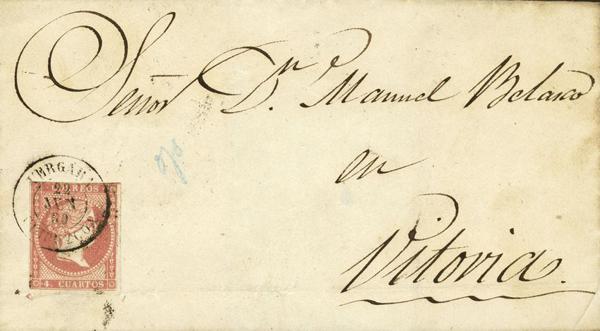 Señor Dn. Manuel Belasco
en
Vitoria.
VERGARA
22
JUN
60
CORREOS
4. CUARTOS